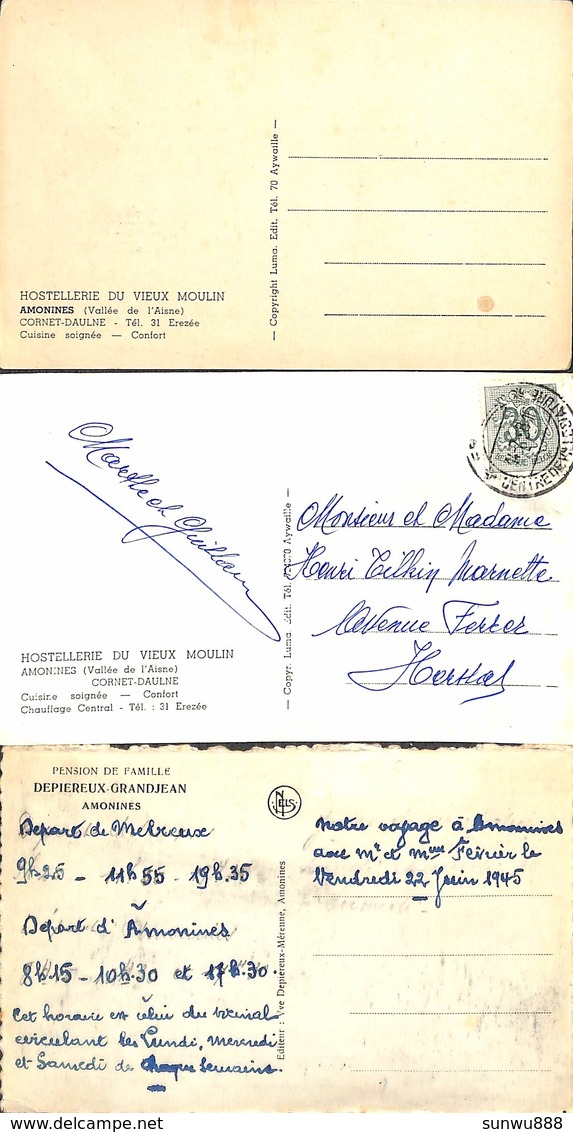 HOSTELLERIE DU VIEUX MOULIN
AMONINES (Vallée de l'Aisne)
CORNET-DAULNE - Tél. 31 Erezée
Cuisine soignée — Confort
— Copyright Luma. Edit. Tél. 70 Aywaille —
Marthe et Guillaume
Monsieur et Madame
Henri Tilkin Marnette
Avenue Ferrer
Herstal
HOSTELLERIE DU VIEUX MOULIN
AMONINES (Vallée de l'Aisne)
CORNET-DAULNE
Cuisine soignée — Confort
Chauffage Central - Tél. : 31 Erezée
— Copyr. Luma Edit. Tél. 70 Aywaille —
PENSION DE FAMILLE
DEPIEREUX-GRANDJEAN
AMONINES
NELS
Départ de Melreux
9h25 - 11h55 - 19h.35
Départ d'Amonines
8h15 - 10h.30 et 17h.30.
Cet horaire est celui du vicinal
circulant les Lundi, Mercredi
et Samedi de chaque semaine.
Editeur : Vve Depiereux-Mérenne, Amonines
Notre voyage à Amonines
avec Mr et Mme Février le
Vendredi 22 Juin 1945
sunwu888